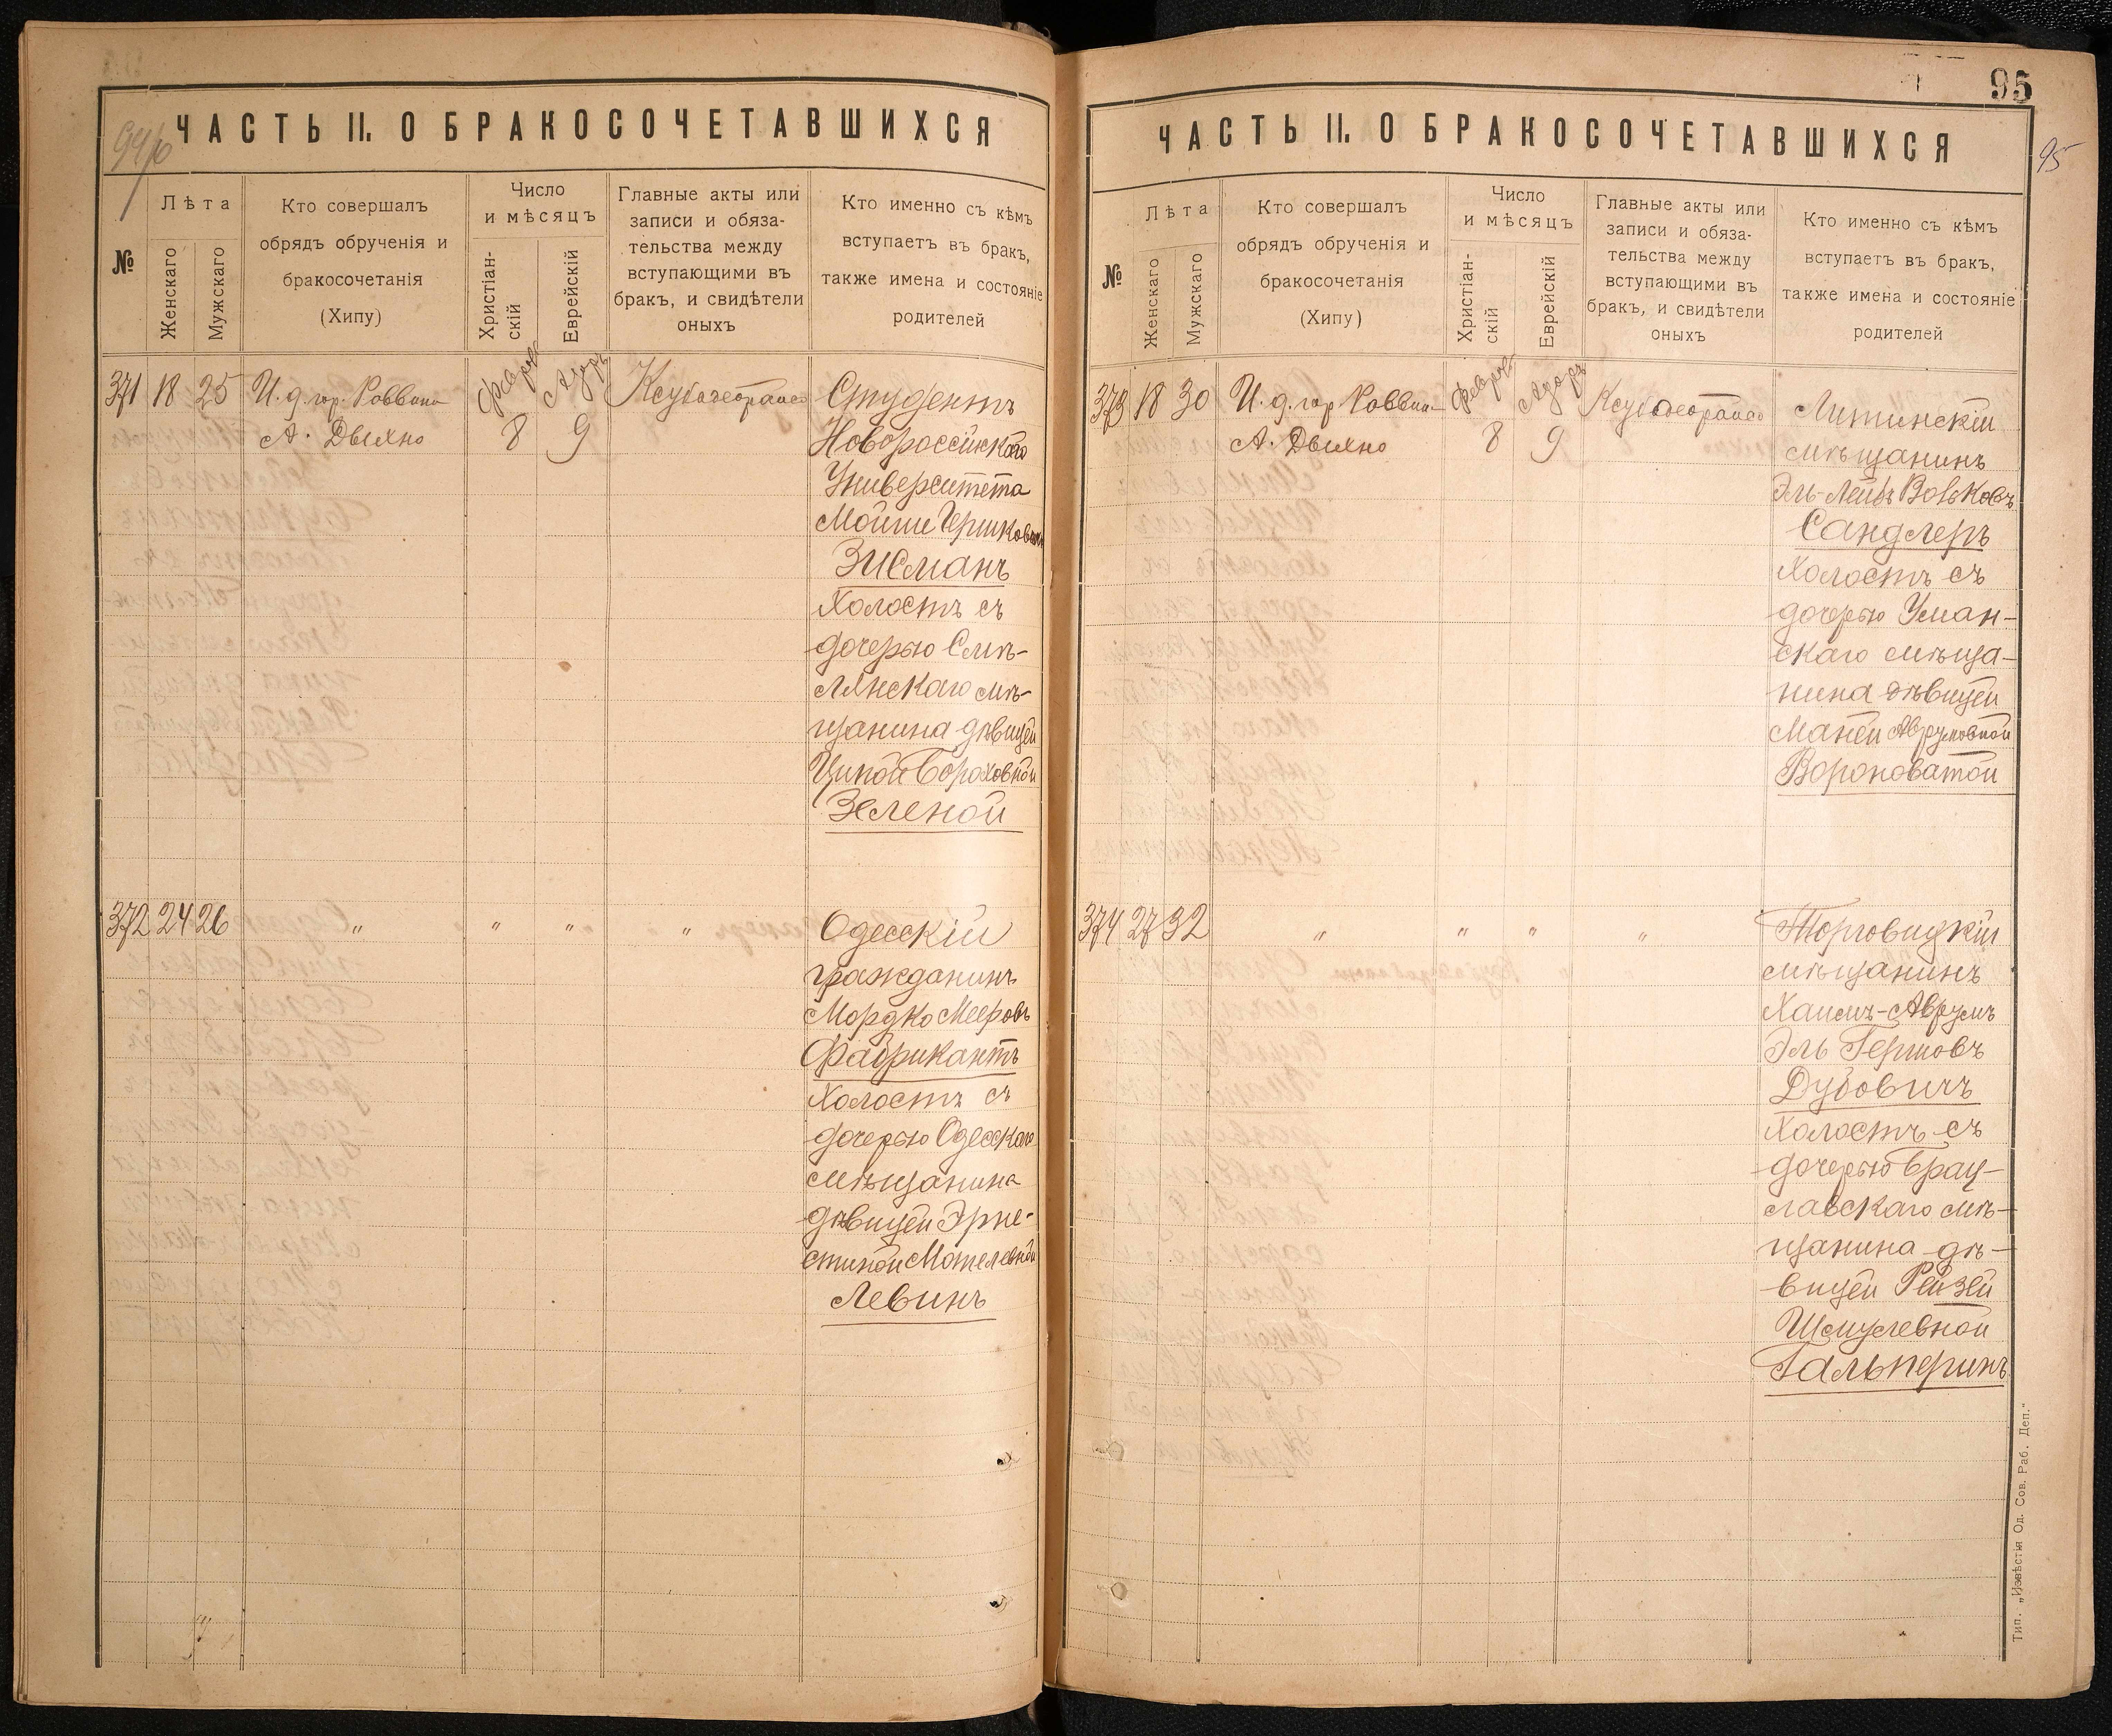 94/б
ЧАСТЬ II. О БРАКОСОЧЕТАВШИХСЯ
№
Лѣта
Женскаго
Мужскаго
Кто совершалъ
обрядъ обрученія и
бракосочетанія
(Хипу)
Число
и мѣсяцъ
Христіан-
скій
Еврейскій
Главные акты или
записи и обяза-
тельства между
вступающими въ
бракъ, и свидѣтели
оныхъ
Кто именно съ кѣмъ
вступаетъ въ бракъ,
также имена и состояніе
родителей
371 18 25 И. д. гор. Раввина
А. Дыхно
8 9
Студентъ
Новороссійскаго
Университета
Мойше Гершковичъ
Зисманъ
холостъ съ
дочерью Смѣ-
лянскаго мѣ-
щанина дѣвицей
Ципой Бороховной
Зеленой
372 24 26 " " " "
Одесскій
гражданинъ
Мордко Мееровъ
Фабрикантъ
холостъ съ
дочерью Одесскаго
мѣщанина
дѣвицей Эрне-
стиной Мотелевной
Левинъ
95
95
ЧАСТЬ II. О БРАКОСОЧЕТАВШИХСЯ
№
Лѣта
Женскаго
Мужскаго
Кто совершалъ
обрядъ обрученія и
бракосочетанія
(Хипу)
Число
и мѣсяцъ
Христіан-
скій
Еврейскій
Главные акты или
записи и обяза-
тельства между
вступающими въ
бракъ, и свидѣтели
оныхъ
Кто именно съ кѣмъ
вступаетъ въ бракъ,
также имена и состояніе
родителей
373 18 30 И. д. гор. Раввина
А. Дыхно
8 9
Литинскій
мѣщанинъ
Эль-Лейбъ Вольковъ
Сандлеръ
холостъ съ
дочерью Уман-
скаго мѣща-
нина дѣвицей
Маней Аврумовной
Вороноватой
374 27 32 " " " "
Торговицкій
мѣщанинъ
Хаимъ-Аврумъ
Эль Гершовъ
Дубовичъ
холостъ съ
дочерью Брац-
лавскаго мѣ-
щанина дѣ-
вицей Рейзей
Шмулевной
Гальперинъ
Тип. „Извѣстія Од. Сов. Раб. Деп."